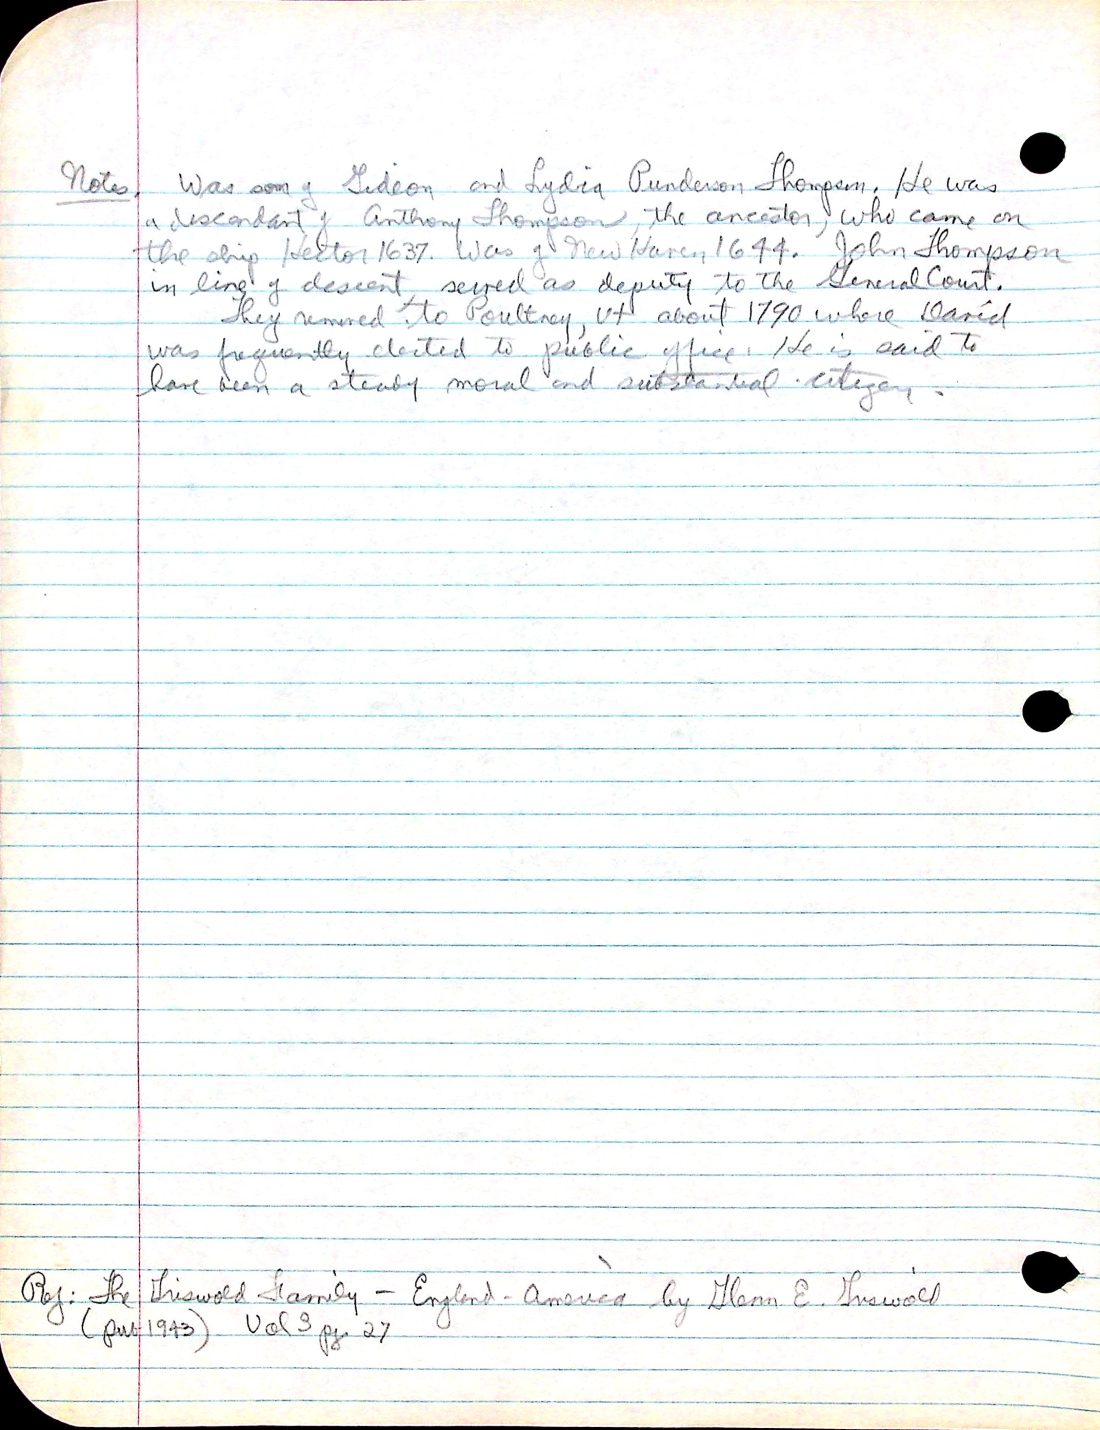 Notes. Was son of Gideon and Lydia Punderson Thompson. He was
a descendant of Anthony Thompson, the ancestor, who came on
the ship Hector 1637. Was of New Haven 1644. John Thompson
in line of descent, served as deputy to the General Court.
They removed to Poultney, Vt about 1790 where David
was frequently elected to public office. He is said to
have been a steady moral and substantial citizen.
Ref: The Griswold Family - England - America by Glenn E. Griswold
(pub 1943) Vol 3 pg. 27